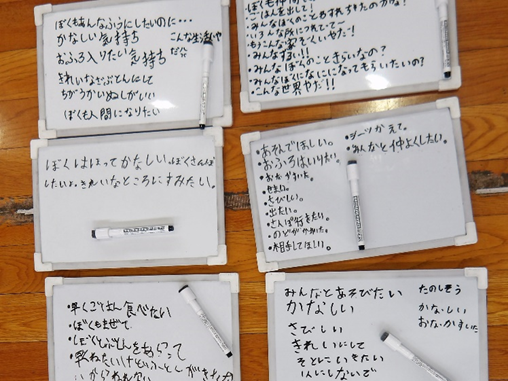 ぼくもあんなふうにしたいのに…
かなしい気持ち
こんな生活いや
だ
おふろ入りたい気持ち
きれいなざぶとんにして
ちがうかいぬしがいい
ぼくも人間になりたい
・ごはんを出して
・みんなぼくのこともわすれちゃったのかな?
・いろんな所につれてって〜
・もうこんな家ぞくいやだー!
・みんなずるい!!
・みんなぼくのこときらいなの?
・みんなぼくになにになってもらいたいの?
・こんな世界やだ!!
ぼくはほっててかなしい。ぼくさんぽ
したいな。きれいなところにすみたい。
・あそんでほしい。
・おふろはいりたい。
・おなかすいた。
・せまい。
・さびしい。
・出たい。
・さんぽ行きたい。
・のどがかわいた。
・相手してほしい。
・シーツかえて。
・みんなと仲よくしたい。
・早くごはん食べたい
・ぼくもまぜて。
・ぼくとふとんをあらって
みんなとあそびたい
かなしい
さびしい
きれいにして
そとにいきたい
たのしそう
かなしい
おなかすいた